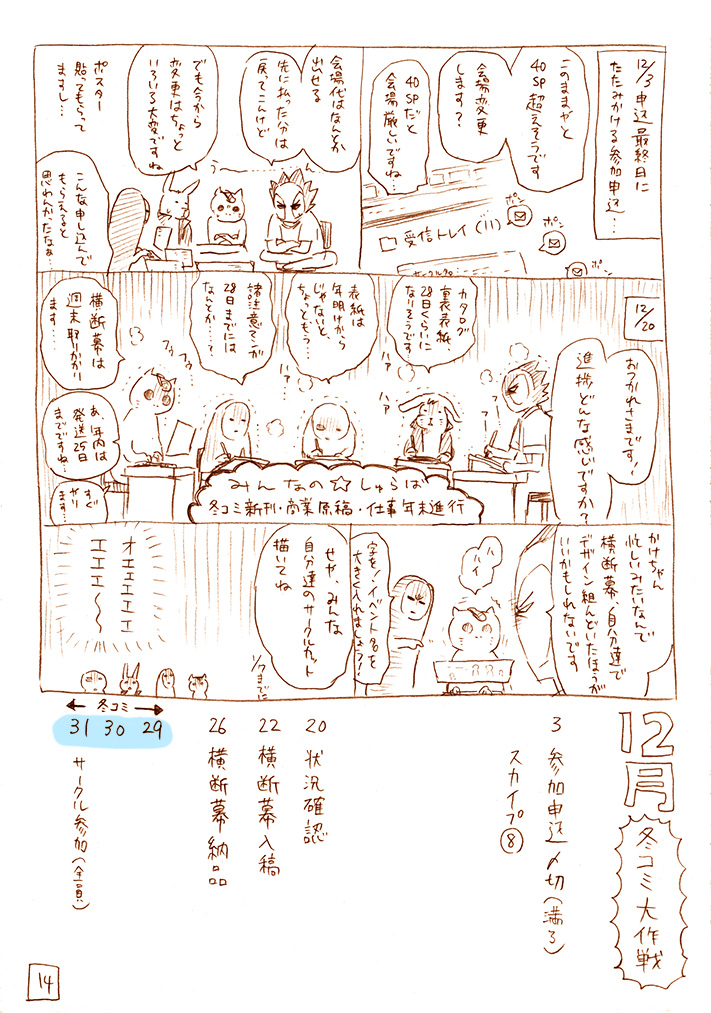 12/3 申込最終日に
たたみかける参加申込…
このままやと
40SP超えそうです
会場変更
します?
40SPだと
会場厳しいですね…
ポン
ポン
ポン
受信トレイ(11)
会場代はなんとか
出せる
先に払った分は
戻ってこんけど
うーーーん
でも今から
変更はちょっと
いろいろ大変ですね
ポスター
貼ってもらって
ますし…
こんな申し込んで
もらえると
思わんかったなぁ…
12/20
おつかれさまです!
進捗どんな感じですか?
カタログ
裏表紙、
28日くらいに
なりそうです…
表紙は
年明けから
じゃないと、
ちょっともう…
諸注意マンガ
28日までには
なんとか…?
横断幕は
週末取りかかり
ます…
あ、年内は
発送25日
までですね…
すぐ
やり
ます…
フゥ
フゥ
ハァ
ハァ
フー
フー
みんなの☆しゅらば
冬コミ新刊・商業原稿・仕事年末進行
かけちゃん
忙しいみたいなんで
横断幕、自分達で
デザイン組んどいたほうが
いいかもしれないです
ハイ
ハイ
字を!イベント名を
大きく入れましょう!
せや、みんな
自分達のサークルカット
描いてね
1/7までに
オエエエエエ
エエエ〜〜
12月
冬コミ大作戦
3 参加申込〆切(満了)
スカイプ⑧
20 状況確認
22 横断幕入稿
26 横断幕納品
冬コミ
29
30
31
サークル参加(全員)
14